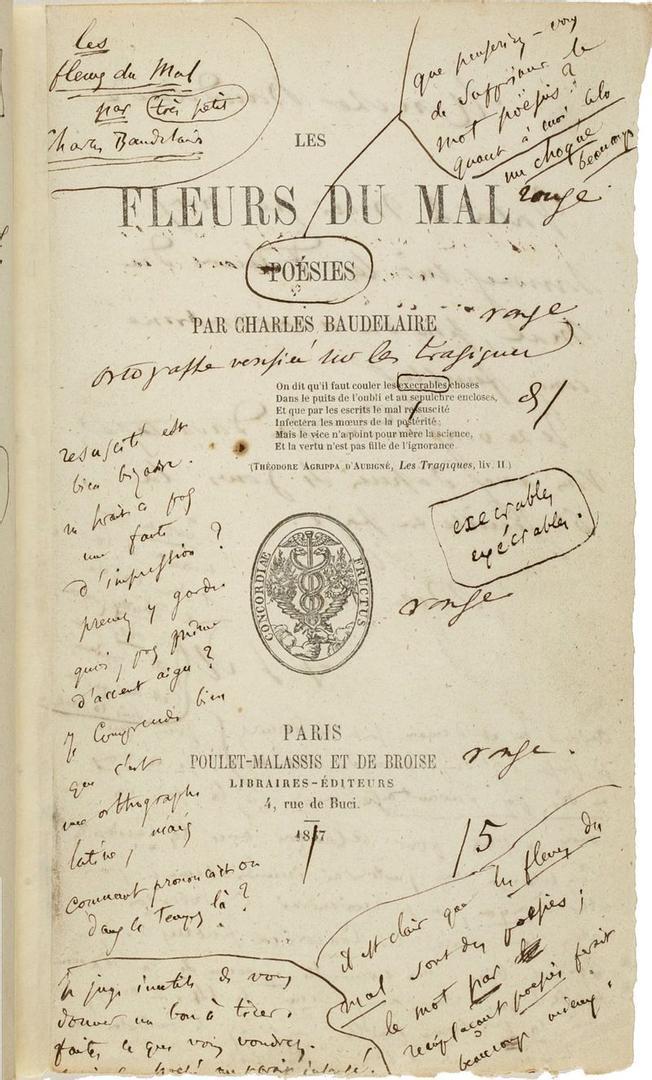 les
fleurs du Mal
par (très petit)
Charles Baudelaire
que penseriez-vous
de supprimer le
mot poësies?
quant à moi cela
me choque
beaucoup
rouge
LES
FLEURS DU MAL
POÉSIES
PAR CHARLES BAUDELAIRE
rouge
ortografe verifiée sur les Tragiques
On dit qu'il faut couler les execrables choses
Dans le puits de l'oubli et au sepulchre encloses,
Et que par les escrits le mal resuscité
Infectera les mœurs de la postérité;
Mais le vice n'a point pour mère la science,
Et la vertu n'est pas fille de l'ignorance.
(THÉODORE AGRIPPA D'AUBIGNÉ, Les Tragiques, liv. II.)
resuscité est
bien bizarre.
ne serait ce pas
une faute
d'impression?
prenez y garde
quoi, pas même
d'accent aigu?
je Comprends bien
que c'est
une orthographe
latine, mais
comment prononçait on
dans le temps là?
execrables
exécrables.
CONCORDIAE FRUCTUS
rouge
PARIS
POULET-MALASSIS ET DE BROISE
LIBRAIRES-ÉDITEURS
4, rue de Buci.
rouge.
1857
/5
il est clair que les fleurs du
mal sont des poësies;
le mot par
remplaçant poësies ferait
beaucoup mieux.
Je juge inutile de vous
donner un bon à tirer.
faites ce que vous voudrez.